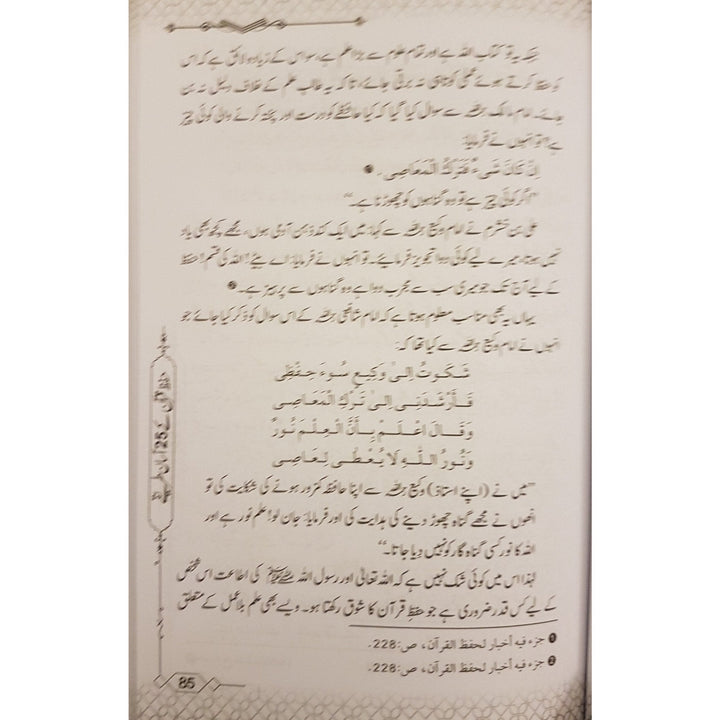 جبکہ یہ تو کتاب اللہ ہے اور تمام علوم سے بڑا علم ہے، سو اس کے زیادہ لائق ہے کہ اس
کو حفظ کرتے ہوئے عملی کوتاہی نہ برتی جائے، تاکہ یہ طالب علم کے خلاف دلیل نہ بن
جائے۔ امام مالک رحمہ اللہ سے سوال کیا گیا کہ کیا حافظے کو درست اور پختہ کرنے والی کوئی چیز
ہے؟ تو انہوں نے فرمایا:
إِنْ كَانَ شَيْءٌ فَتَرْكُ الْمَعَاصِي. ❶
"اگر کوئی چیز ہے تو وہ گناہوں کو چھوڑنا ہے۔"
علی بن خشرم نے امام وکیع رحمہ اللہ سے کہا: میں ایک کند ذہن آدمی ہوں، مجھے کچھ بھی یاد
نہیں ہوتا، میرے لیے کوئی دوا تجویز فرمائیے۔ تو انہوں نے فرمایا: اے بیٹے! اللہ کی قسم! حفظ
کے لیے آج تک جو میری سب سے مجرب دوا ہے وہ گناہوں سے پرہیز ہے۔ ❷
یہاں یہ بھی مناسب معلوم ہوتا ہے کہ امام شافعی رحمہ اللہ کے اس سوال کو ذکر کیا جائے جو
انہوں نے امام وکیع رحمہ اللہ سے کیا تھا کہ:
شَكَوْتُ إِلَىٰ وَكِيعٍ سُوءَ حِفْظِي
فَأَرْشَدَنِي إِلَىٰ تَرْكِ الْمَعَاصِي
وَقَالَ اعْلَمْ بِأَنَّ الْعِلْمَ نُورٌ
وَنُورُ اللَّهِ لَا يُعْطَى لِعَاصِي
"میں نے (اپنے استاذ) وکیع رحمہ اللہ سے اپنا حافظہ کمزور ہونے کی شکایت کی تو
انھوں نے مجھے گناہ چھوڑ دینے کی ہدایت کی اور فرمایا: جان لو! علم نور ہے اور
اللہ کا نور کسی گناہ گار کو نہیں دیا جاتا۔"
لہٰذا اس میں کوئی شک نہیں ہے کہ اللہ تعالیٰ اور رسول اللہ ﷺ کی اطاعت اس شخص
کے لیے کس قدر ضروری ہے جو حفظِ قرآن کا شوق رکھتا ہو۔ ویسے بھی علم بلاعمل کے متعلق
❶ جزء فيه أخبار لحفظ القرآن، ص: 228۔
❷ جزء فيه أخبار لحفظ القرآن، ص: 228۔
85
حفظ قرآن کے 25 آسان طریقے